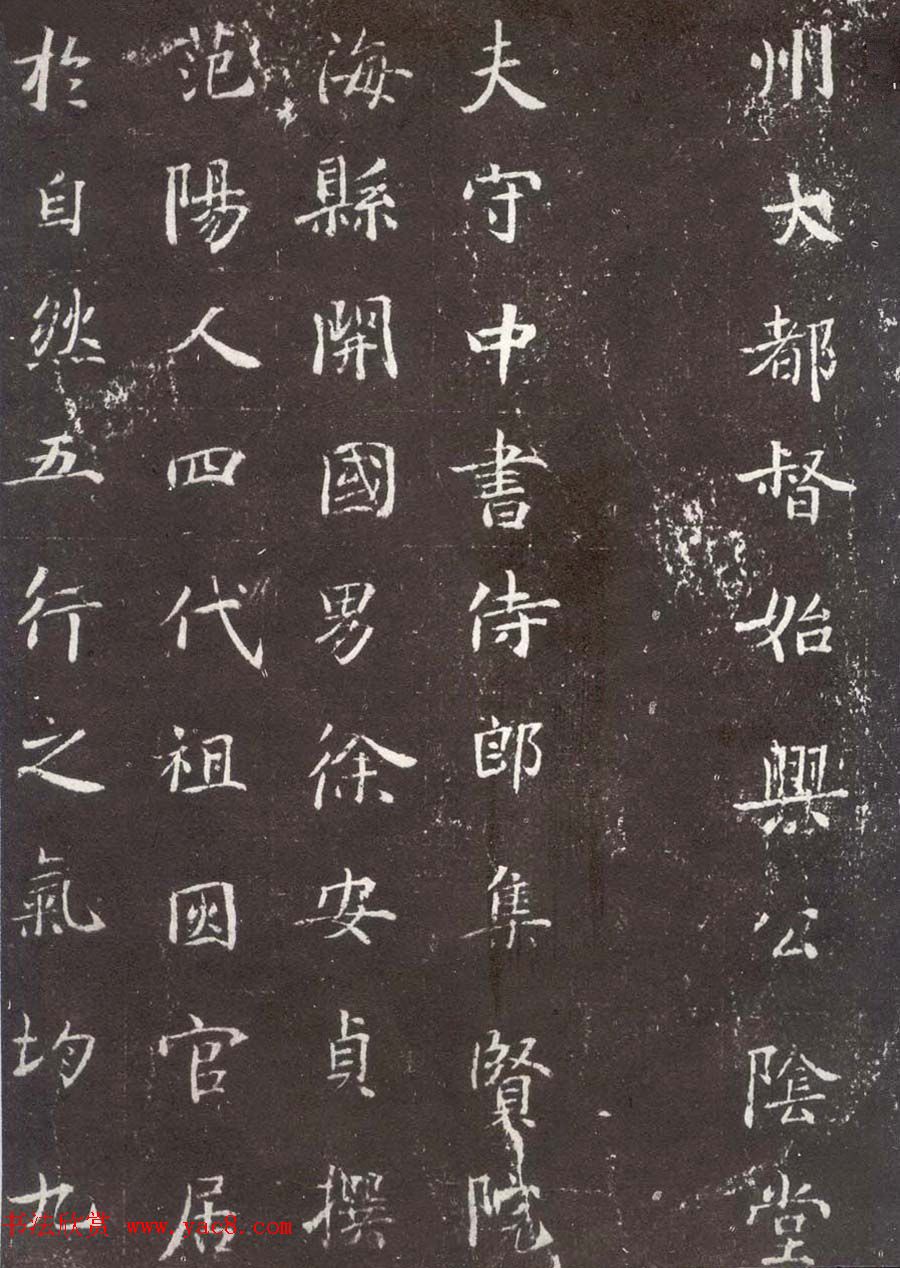 州大都督始興公陰堂
夫守中書侍郎集賢院
海縣開國男徐安貞撰
范陽人四代祖因官居
於自然五行之氣均九
书法欣赏 www.yac8.com